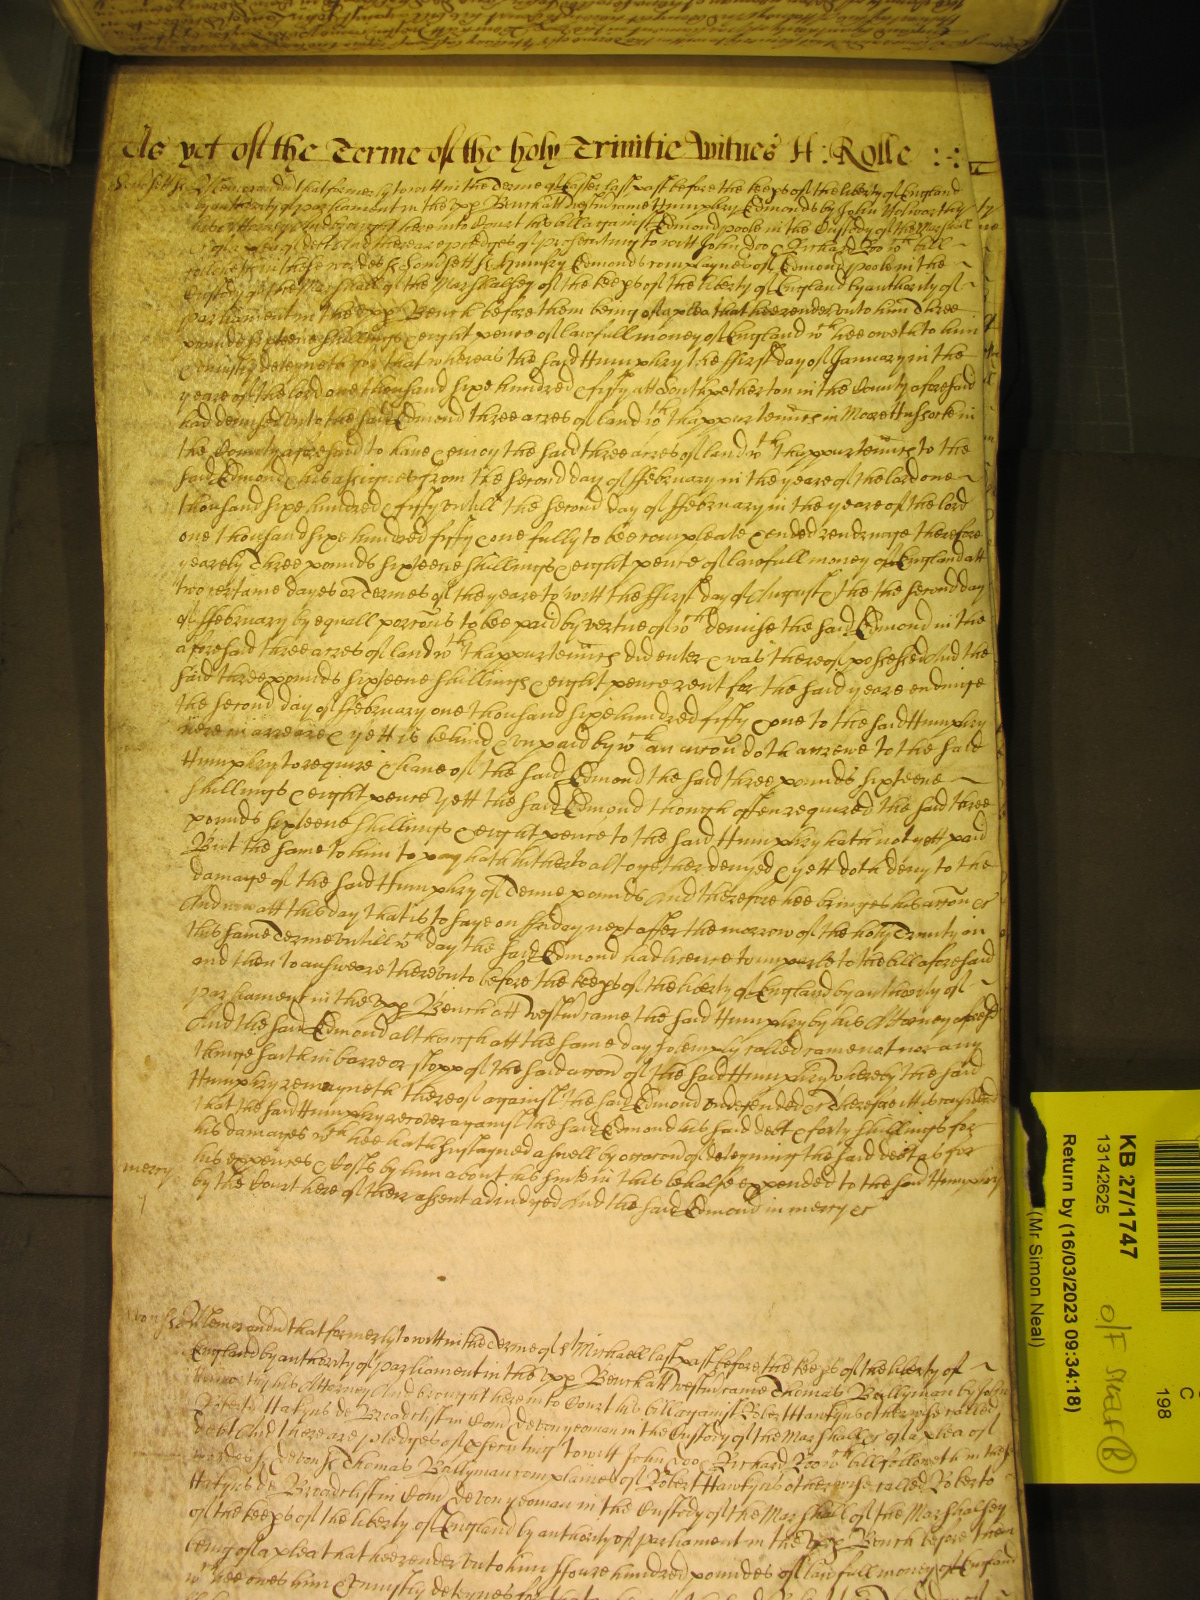 As yet of the Terme of the holy Trinitie Witnes H: Rolle
Somsett ss Memorandu that formerly to witt in the Terme of Easter last past before the keeps of the liberty of England
by authority of parliament in the upp Bench att Westm came Humphry Edmonds by John
his Attorney And brought here into Court his bill against Edmond poole in the Custody of the Marshall
of a plea of debt And there are pledges of prosecuting to witt John Doo & Richard Roo wch bill
followeth in these wordes ss Somsett ss Humfry Edmonds complaynes of Edmond poole in the
Custody of the Marshall of the Marshalsey of the keeps of the liberty of England by authority of
parliament in the upp Bench before them being of a plea that hee render unto him three
pounds sixteene shillings & eight pence of lawfull money of England wch hee oweth to him
& uniustly deteyneth for that whereas the said Humphry the ffirst day of January in the
yeare of the lord one thousand sixe hundred & fifty att Southpetherton in the County aforesaid
had demised unto the said Edmond three acres of land wth thappurtennces in in
the County aforesaid to have & enioy the said three acres of land wth thappurtennces to the
said Edmond & his assignes from the second day of ffebruary in the yeare of the lord one
thousand sixe hundred & fifty untill the second day of ffebruary in the yeare of the lord
one thousand sixe hundred fifty & one fully to bee compleate & ended rendringe therefore
yearely three pounds sixteene shillings & eight pence of lawfull money of England att
two certaine dayes or Termes of the yeare to witt the ffirst day of August & the the second day
of ffebruary by equall porcons to bee paid by vertue of wch demise the said Edmond in the
aforesaid three acres of land wth thappurtennces did enter & was thereof possessed And the
said three pounds sixteene shillings & eight pence rent for the said yeare endinge
the second day of ffebruary one thousand sixe hundred fifty & one to the said Humphry
were in arreare & yett is behind & unpaid by wch an accon doth accrewe to the said
Humphry to require & have of the said Edmond the said three pounds sixteene
shillings & eight pence Yett the said Edmond though often required the said three
pounds sixteene shillings & eight pence to the said Humphry hath not yett paid
But the same to him to pay hath hitherto altogether denyed & yett doth deny to the
damage of the said Humphry of Tenne pounds And therefore hee bringes his accon &c
And now att this day that is to saye on friday next after the morrow of the holy Trinity in
this same Terme untill wch day the said Edmond had licence to imparle to the bill aforesaid
and then to answeare thereunto before the keeps of the liberty of England by authority of
parliament in the upp Bench att Westm came the said Humphry by his Attorney aforesd
And the said Edmond although att the same day solemply called came not nor any
thinge saith in barre or stopp of the said accon of the said Humphry whereby the said
Humphry remayneth thereof against the said Edmond undefended &c Therefore itt is considered
that the said Humphry recover against the said Edmond his said debt & forty shillings for
his damages wch hee hath susteyned aswell by occacon of deteyning the said debt as for
mercy his expences & Costs by him about his suite in this behalfe expended to the said Humphry
by the Court here of their assent adiudged And the said Edmond in mercy &c
Devon ss Memorandu that formerly to witt in the Terme of St Michaell last past before the keeps of the liberty of
England by authority of parliament in the upp Bench att Westm came Thomas Ballyman by John
his Attorney And brought here into Court his bill against Robert Hawkyns otherwise called
Roberto Hakyns de Broadclist in Com Devon yeoman in the Custody of the Marshalsey of a plea of
debt And there are pledges of prosecuting to witt John Doo & Richard Roo wch bill followeth in these
wordes ss Devon ss Thomas Ballyman complaines of Robert Hawkyns otherwise called Roberto
Hakyns de Broadclist in Com Devon yeoman in the Custody of the Marshall of the Marshalsey
of the keeps of the liberty of England by authority of parliament in the upp Bench before them
being of a plea that hee render unto him ffoure hundred poundes of lawfull money of England
wch hee owes him & uniustly deteynes for that
KB 27/1747
13142625
Return by (16/03/2023 09:34:18)
(Mr Simon Neal)
C
198